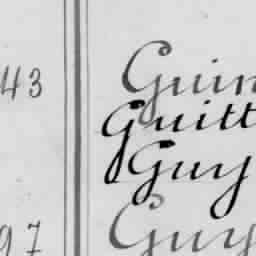 43 Guin
Guitt
Guy
97 Guy